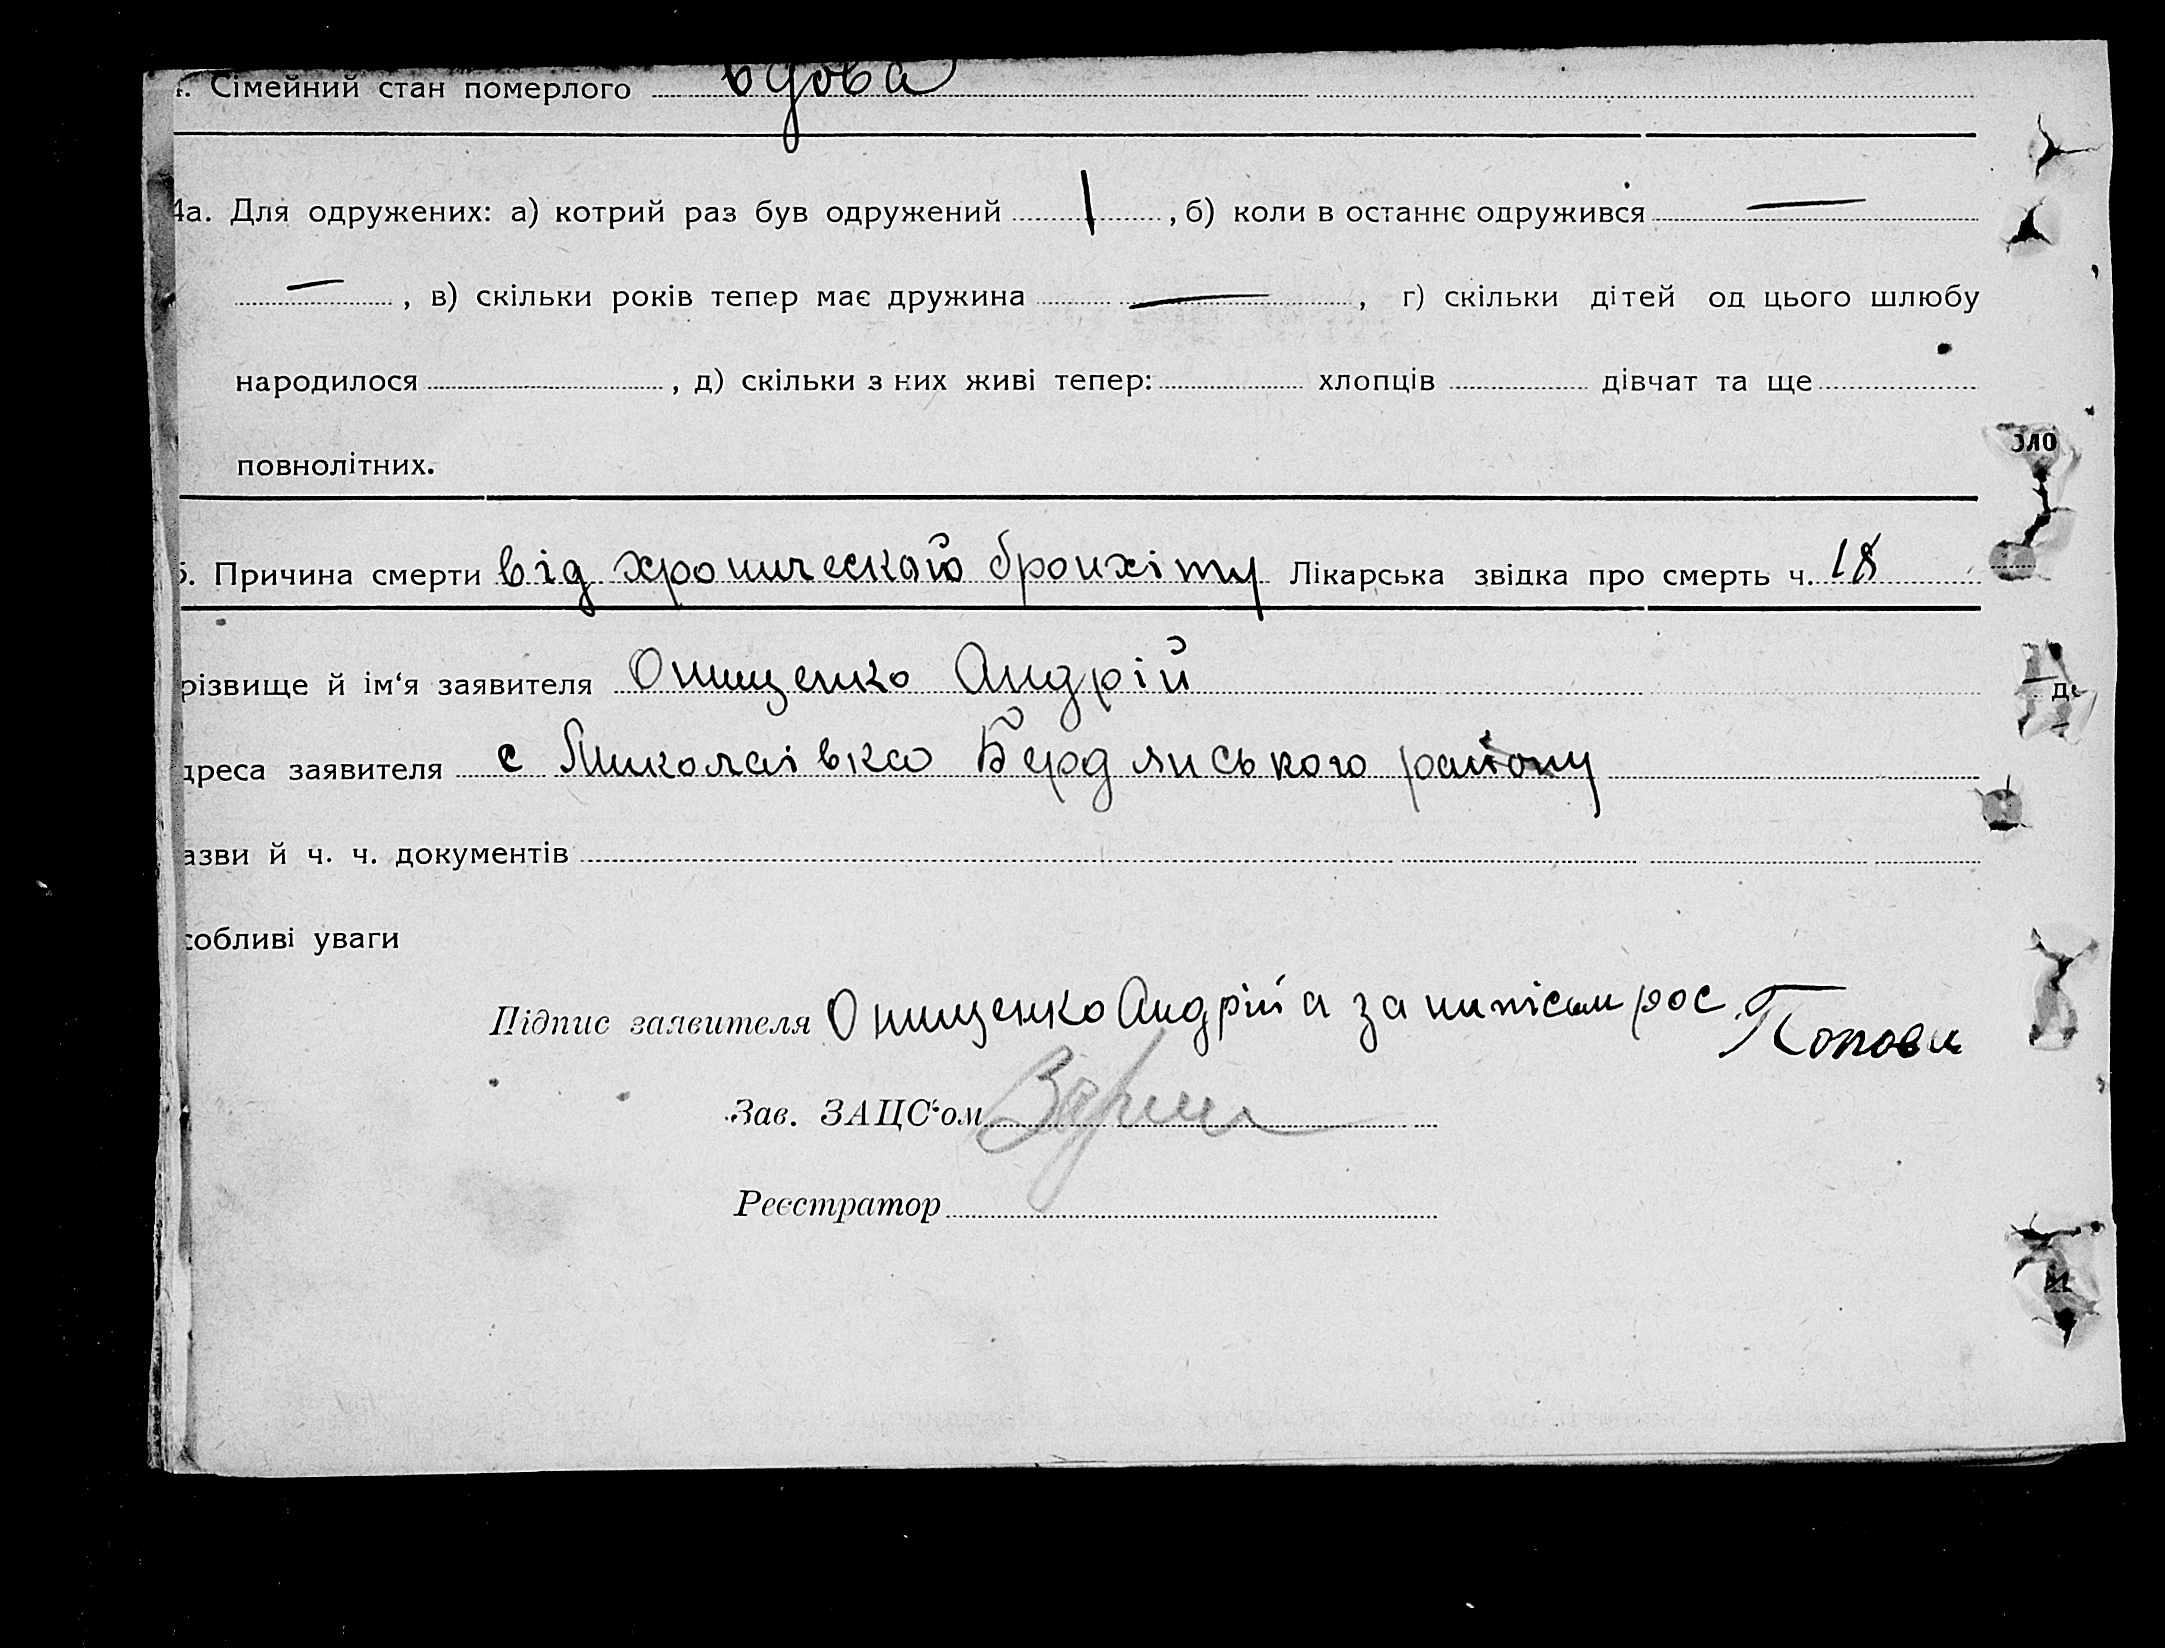 . Сімейний стан померлого вдова
4а. Для одружених: а) котрий раз був одружений 1, б) коли в останнє одружився —
—, в) скільки років тепер має дружина —, г) скільки дітей од цього шлюбу
народилося , д) скільки з них живі тепер: хлопців дівчат та ще
повнолітних.
зло
5. Причина смерти від хроническаго бронхіту Лікарська звідка про смерть ч. 18
різвище й ім‘я заявителя Онищенко Андрій
дреса заявителя с Миколаівка Бердянського району
азви й ч. ч. документів
собливі уваги
Підпис заявителя Онищенко Андрій а за нипісьм рос Попова
Зав. ЗАЦС‘ом
Реєстратор